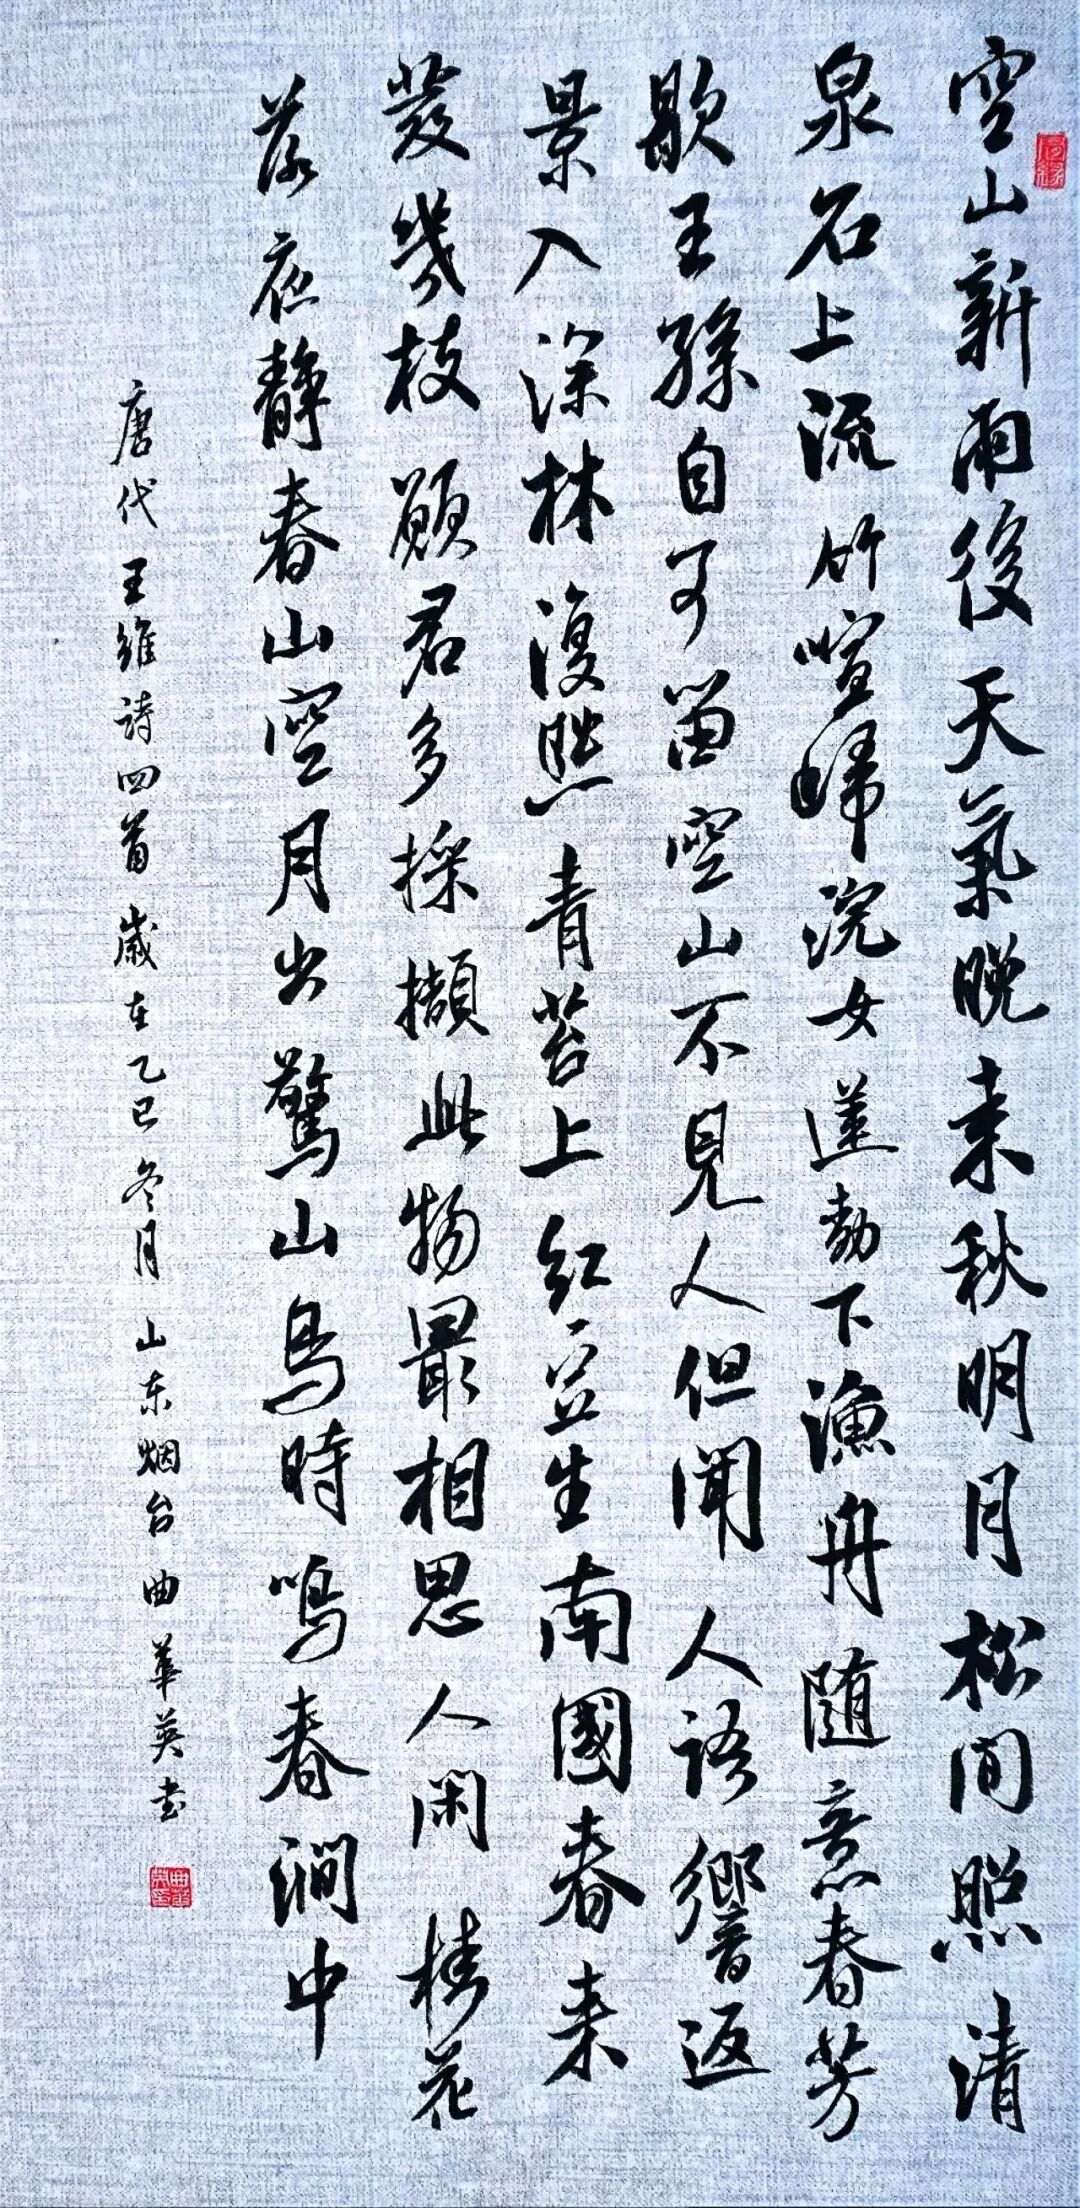 空山新雨後天氣晚来秋明月松间照清
泉石上流竹喧歸浣女蓮動下漁舟随意春芳
歇王孫自可留空山不見人但聞人語響返
景入深林復照青苔上红豆生南國春来
發幾枝願君多採擷此物最相思人闲桂花
落夜静春山空月出驚山鳥時鳴春澗中
唐代王維詩四首歲在乙巳冬月山东烟台曲華英书